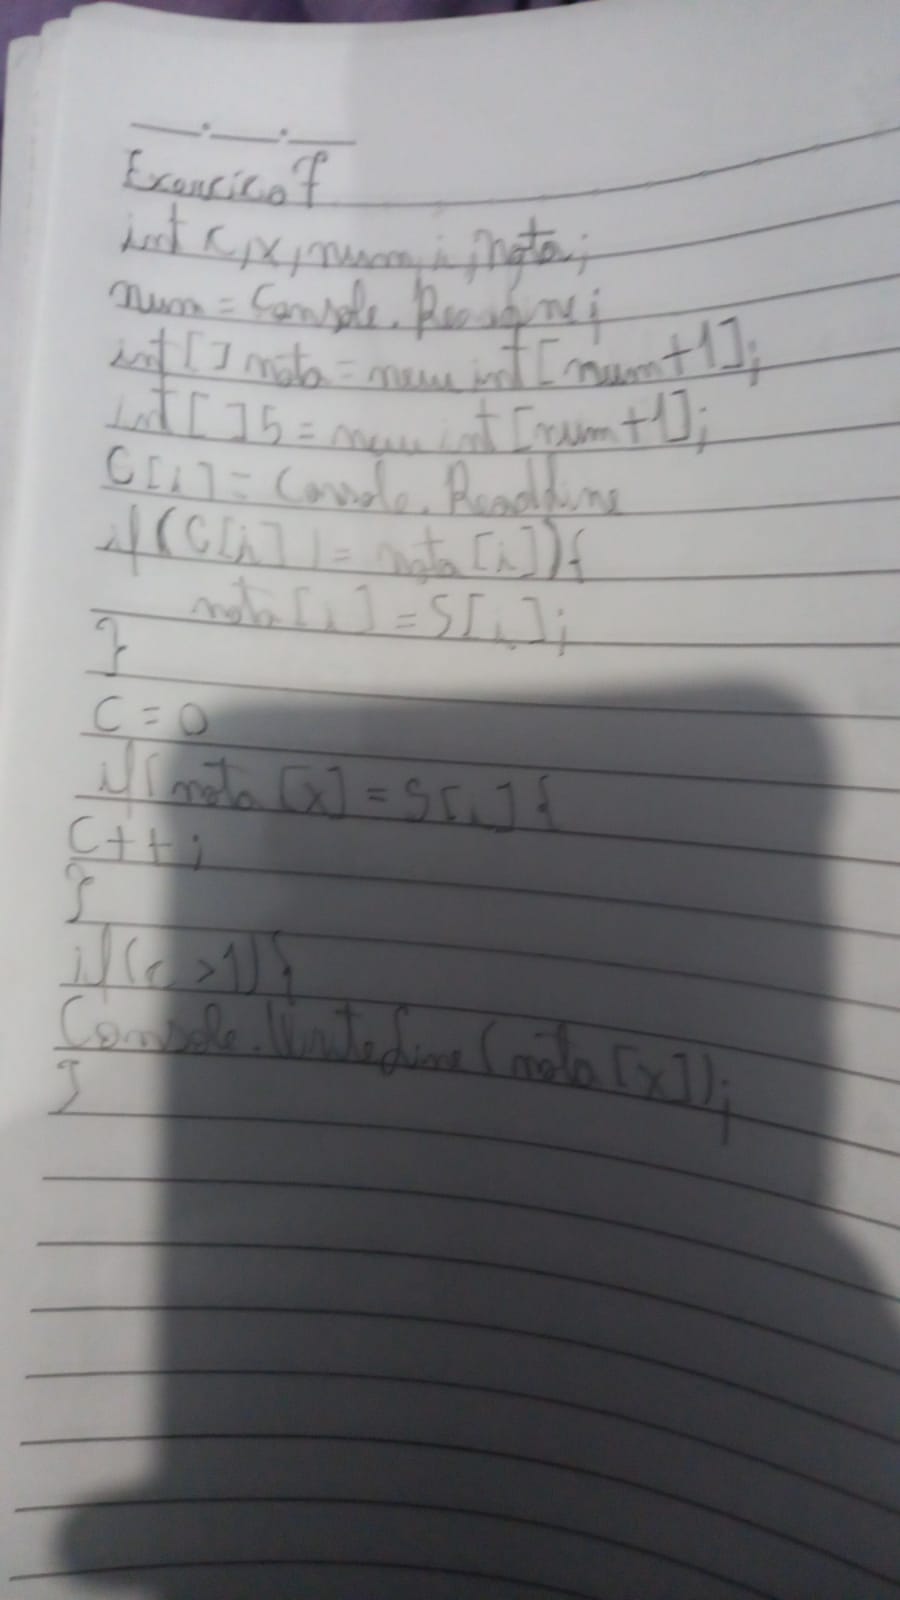 Exercicio 7
int c, x, num, i, nota;
num = Console.ReadLine;
int [ ] nota = new int [num+1];
int [ ] S = new int [num+1];
C[i] = Console.ReadLine
if (C[i] != nota [i]){
nota [i] = S[i];
}
C = 0
if ( nota [x] = S[i] {
C++;
}
if (c >1) {
Console.WriteLine (nota [x]);
}